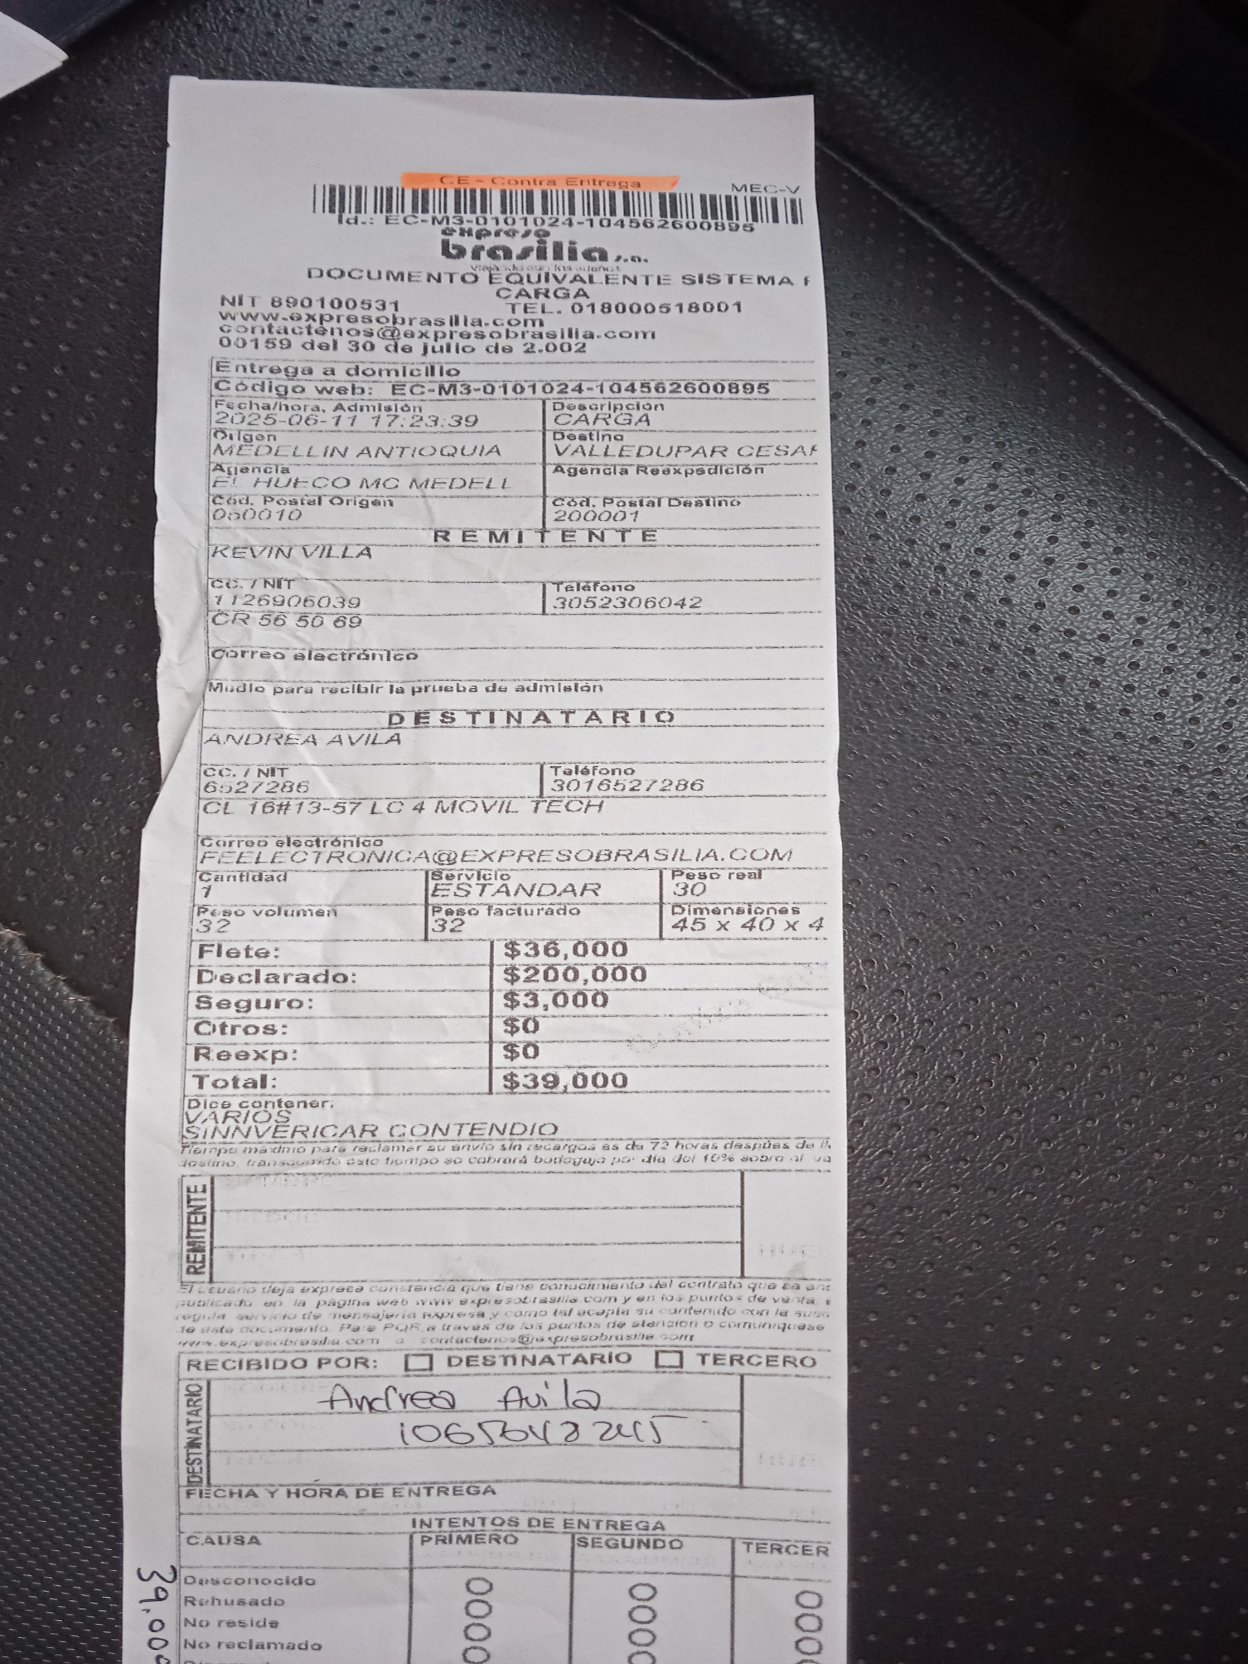 CE - Contra Entrega
MEC-V
Id.: EC-M3-0101024-104562600895
expreso
brasilia s.a.
DOCUMENTO EQUIVALENTE SISTEMA
CARGA
NIT 890100531 TEL. 018000518001
www.expresobrasilia.com
contactenos@expresobrasilia.com
00159 del 30 de julio de 2.002
Entrega a domicilio
Código web: EC-M3-0101024-104562600895
Fecha/hora, Admisión Descripción
2025-06-11 17:23:39 CARGA
Origen Destino
MEDELLIN ANTIOQUIA VALLEDUPAR CESAR
Agencia Agencia Reexpedición
EL HUECO MC MEDELL
Cód. Postal Origen Cód. Postal Destino
050010 200001
REMITENTE
KEVIN VILLA
CC. / NIT Teléfono
1126906039 3052306042
CR 56 50 69
Correo electrónico
Medio para recibir la prueba de admisión
DESTINATARIO
ANDREA AVILA
CC. / NIT Teléfono
6527286 3016527286
CL 16#13-57 LC 4 MOVIL TECH
Correo electrónico
FEELECTRONICA@EXPRESOBRASILIA.COM
Cantidad Servicio Peso real
1 ESTANDAR 30
Peso volumen Peso facturado Dimensiones
32 32 45 x 40 x 4
Flete: $36,000
Declarado: $200,000
Seguro: $3,000
Otros: $0
Reexp: $0
Total: $39,000
Dice contener:
VARIOS
SINNVERICAR CONTENDIO
Tiempo máximo para reclamar su envío sin recargos es de 72 horas después de
destino, transcurrido este tiempo se cobrará bodegaje por día del 10% sobre el va
REMITENTE
El usuario deja expresa constancia que tiene conocimiento del contrato que se
publicado en la página web www.expresobrasilia.com y en los puntos de venta,
regula servicio de mensajería expresa y como tal acepta su contenido con la
de este documento. Para PQR a través de los puntos de atención o comuníquese
www.expresobrasilia.com o contactenos@expresobrasilia.com
RECIBIDO POR: DESTINATARIO TERCERO
DESTINATARIO
Andrea Avila
1065648245
FECHA Y HORA DE ENTREGA
INTENTOS DE ENTREGA
CAUSA PRIMERO SEGUNDO TERCER
Desconocido
Rehusado
No reside
No reclamado
39.000